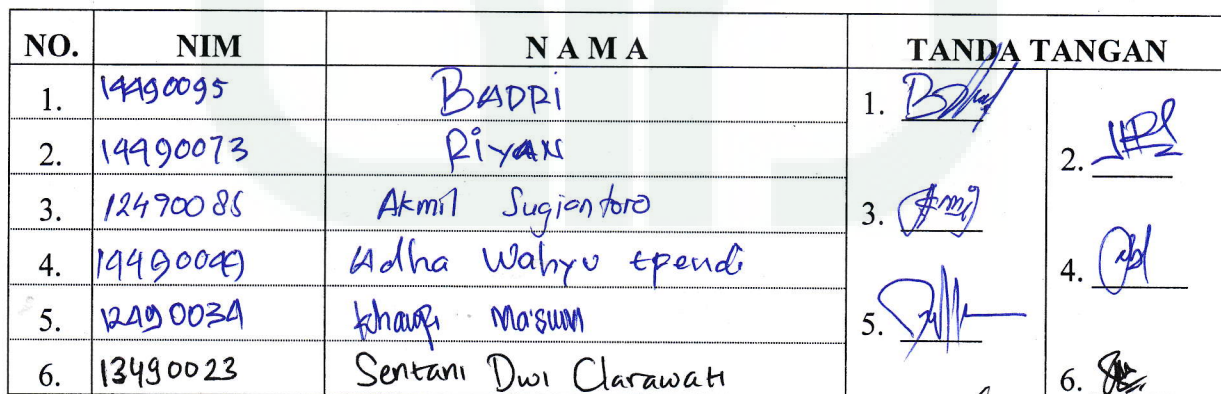 NO. NIM N A M A TANDA TANGAN
1. 14490095 BADRi 1.
2. 14490073 RiYAN 2.
3. 12490085 Akmil Sugiantoro 3.
4. 14490049 Adha Wahyu Ependi 4.
5. 12490034 Ma'sum 5.
6. 13490023 Sentani Dwi Clarawati 6.